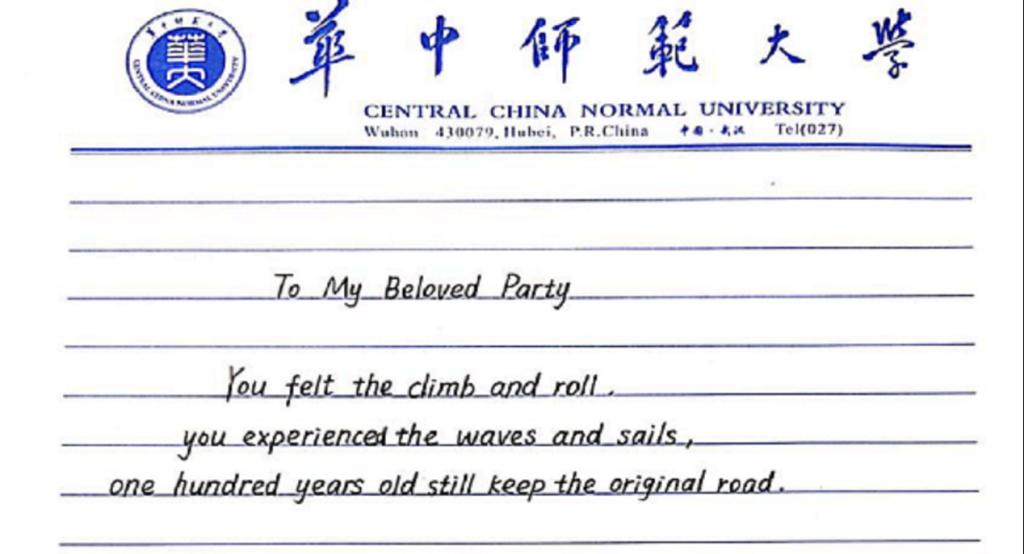 華中師範大學
CENTRAL CHINA NORMAL UNIVERSITY
CENTRAL CHINA NORMAL UNIVERSITY
Wuhan 430079, Hubei, P.R.China 中国·武汉 Tel(027)
To My Beloved Party
You felt the climb and roll.
you experienced the waves and sails,
one hundred years old still keep the original road.